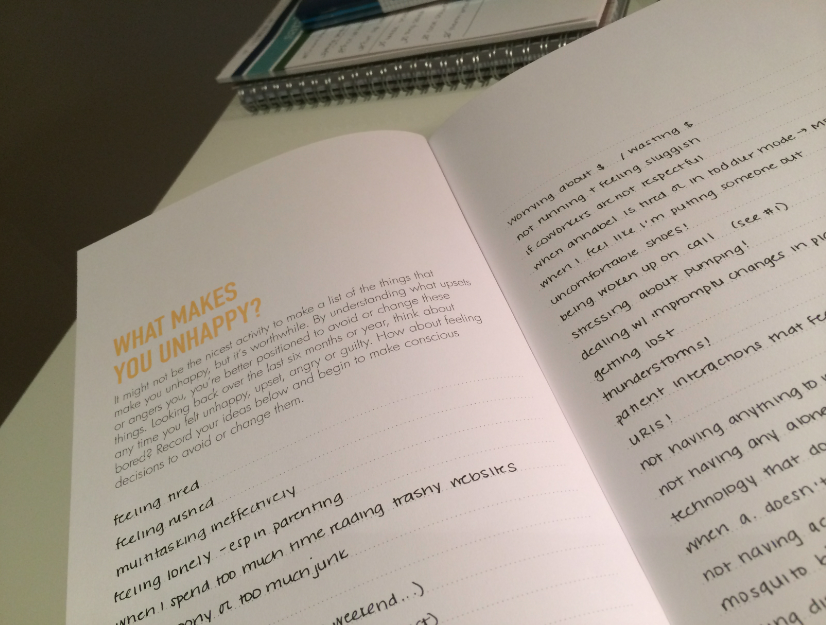 WHAT MAKES
YOU UNHAPPY?
It might not be the nicest activity to make a list of the things that
make you unhappy, but it's worthwhile. By understanding what upsets
or angers you, you're better positioned to avoid or change these
things. Looking back over the last six months or year, think about
any time you felt unhappy, upset, angry or guilty. How about feeling
bored? Record your ideas below and begin to make conscious
decisions to avoid or change them.
feeling tired
feeling rushed
multitasking ineffectively
feeling lonely - esp in parenting
when I spend too much time reading trashy websites
or too much junk
weekend...)
worrying about $ / wasting $
not running + feeling sluggish
if coworkers are not respectful
when annabel is tired or in toddler mode →
when I feel like I'm putting someone out
uncomfortable shoes!
being woken up on call (see #1)
stressing about pumping!
dealing w/ impromptu changes in
getting lost
thunderstorms!
patient interactions that
URIs!
not having anything to
not having any alone
technology that
when a. doesn't
not having
mosquito